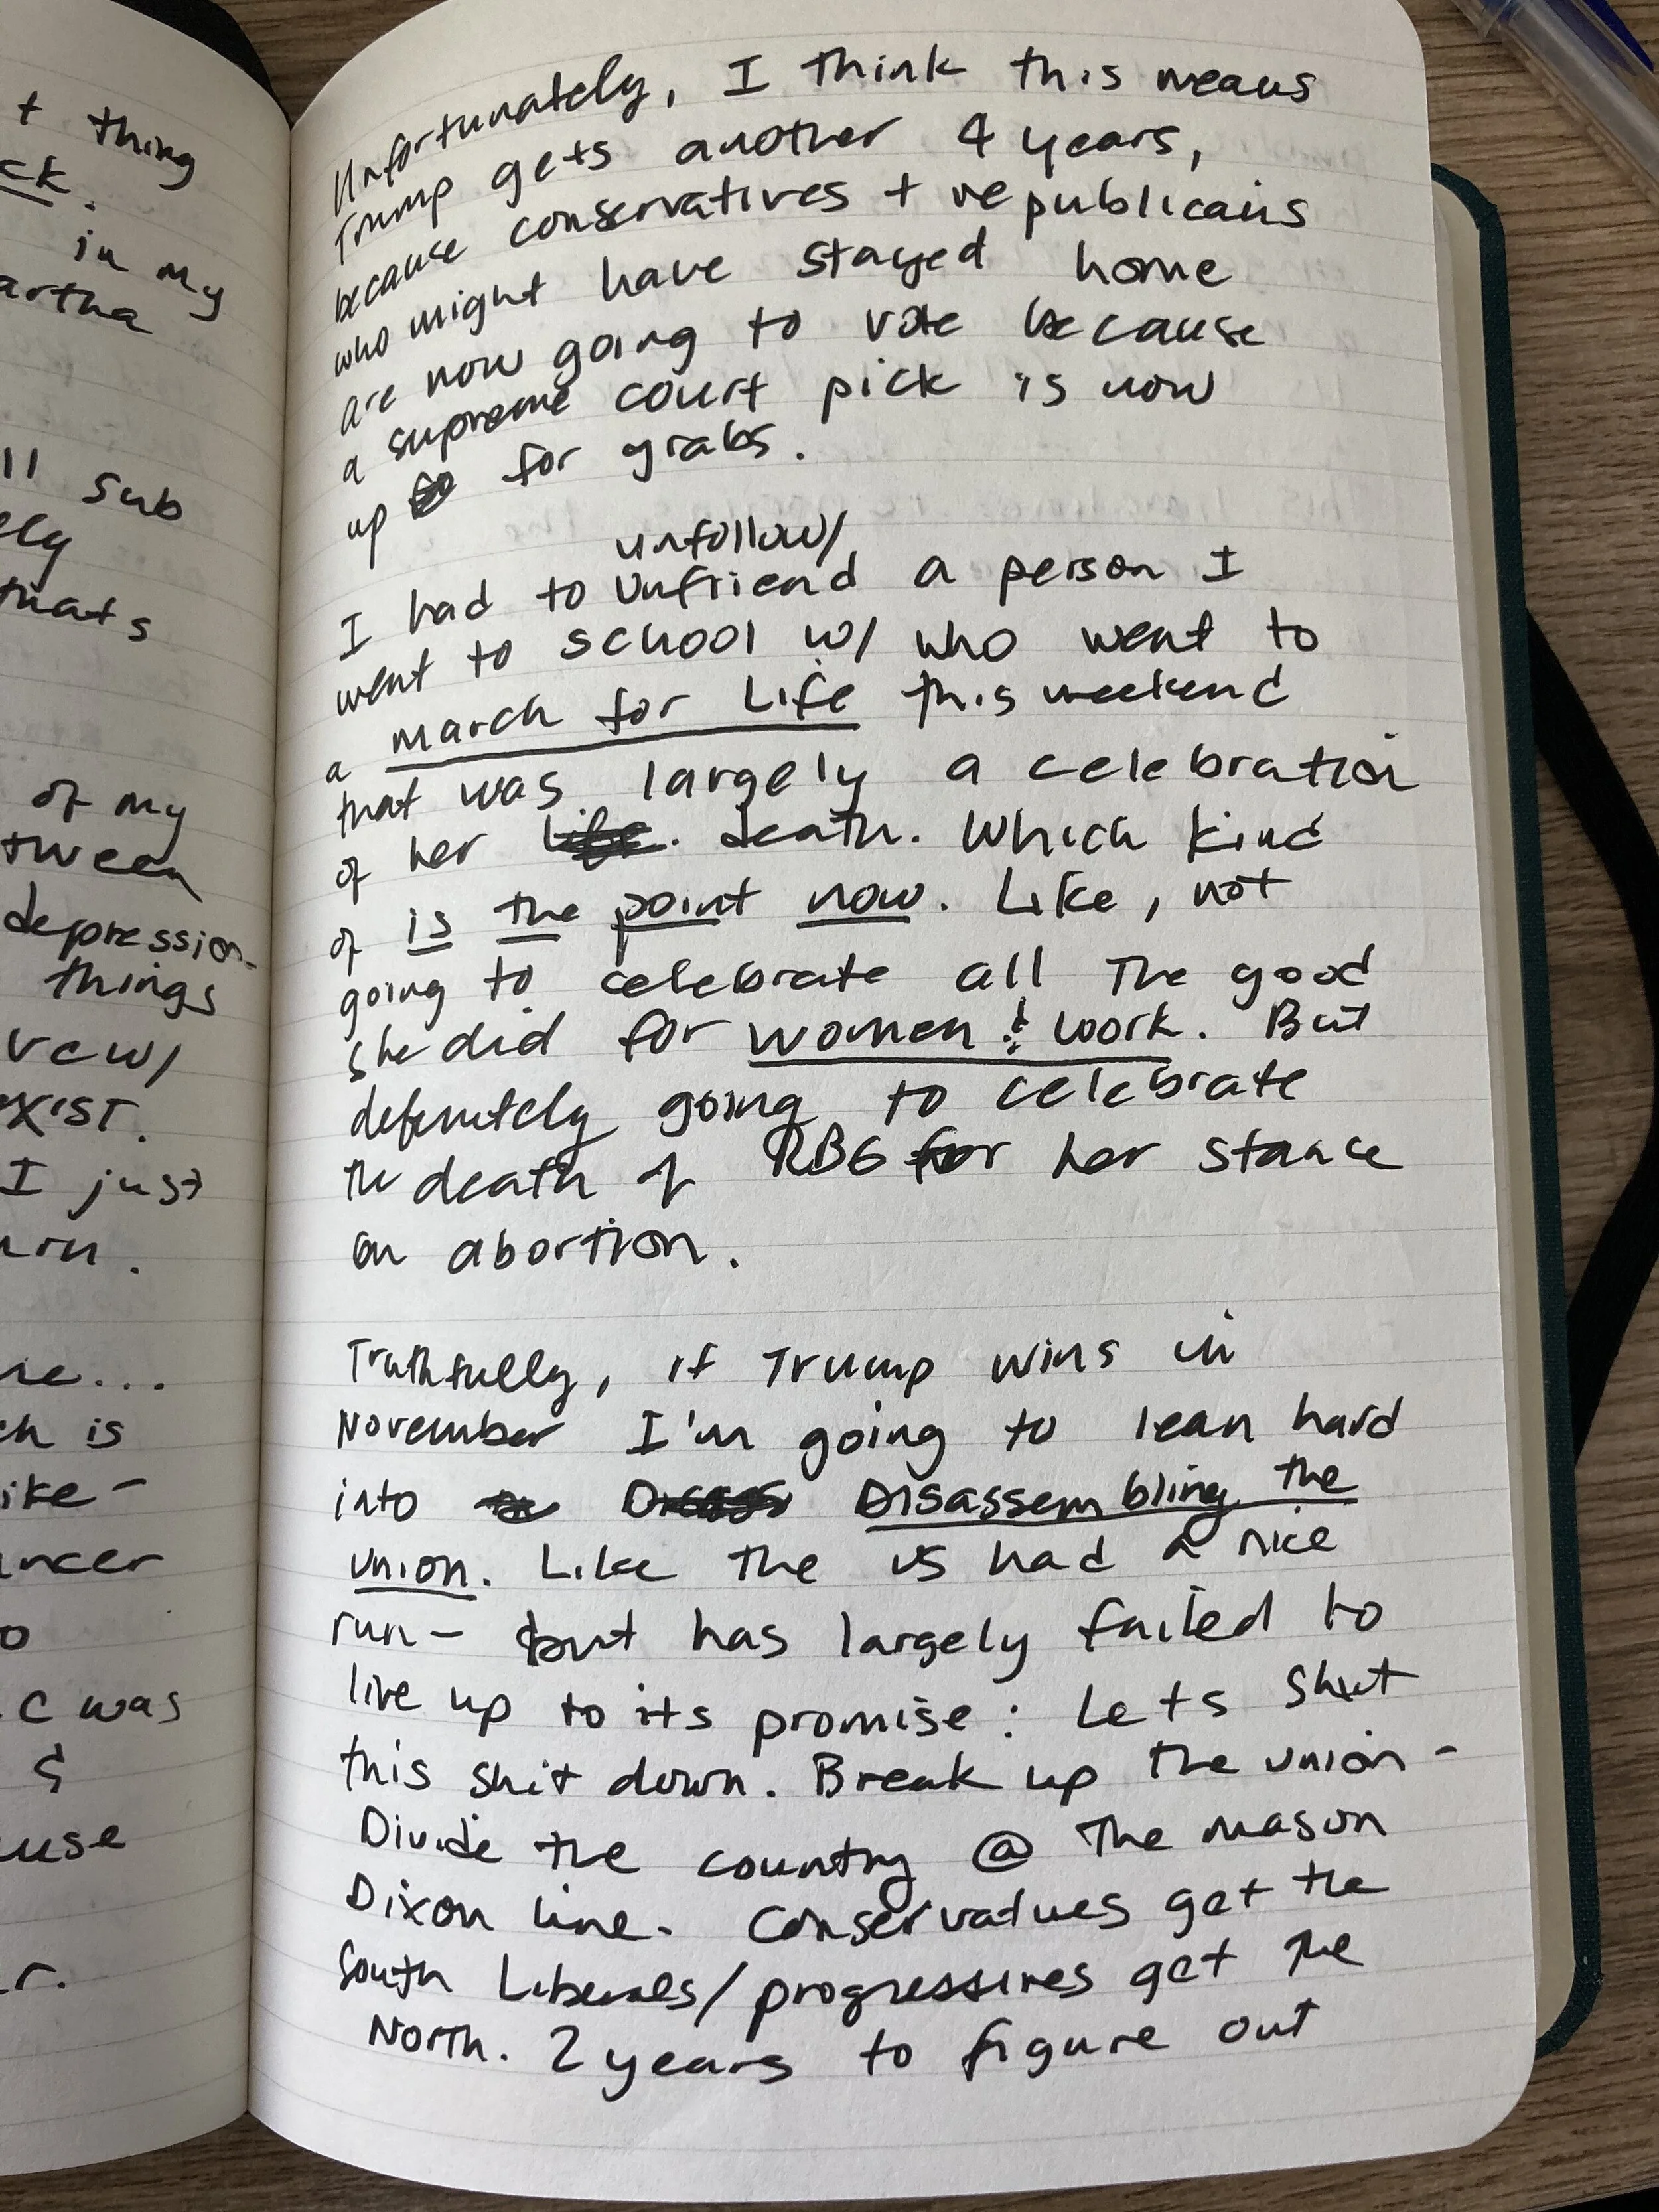 t thing
ck.
in my
artha
ll sub
ely
thats
of my
tween
depression-
things
vew/
exist.
I just
urn.
re...
ch is
ike-
ancer
o
c was
&
use
r.
Unfortunately, I think this means
Trump gets another 4 years,
because conservatives + republicans
who might have stayed home
are now going to vote because
a supreme court pick is now
up for grabs.
unfollow/
I had to Unfriend a person I
went to school w/ who went to
a march for Life this weekend
that was largely a celebration
of her life. death. Which kind
of is the point now. Like, not
going to celebrate all The good
she did for women & work. But
definitely going to celebrate
the death of RBG for her stance
on abortion.
Truthfully, if Trump wins in
November I'm going to lean hard
into Disassembling the
union. Like the US had a nice
run- but has largely failed to
live up to its promise: Lets shut
this shit down. Break up the union-
Divide the country @ The Mason
Dixon line. Conservatives get the
South Liberals/progressives get the
North. 2 years to figure out